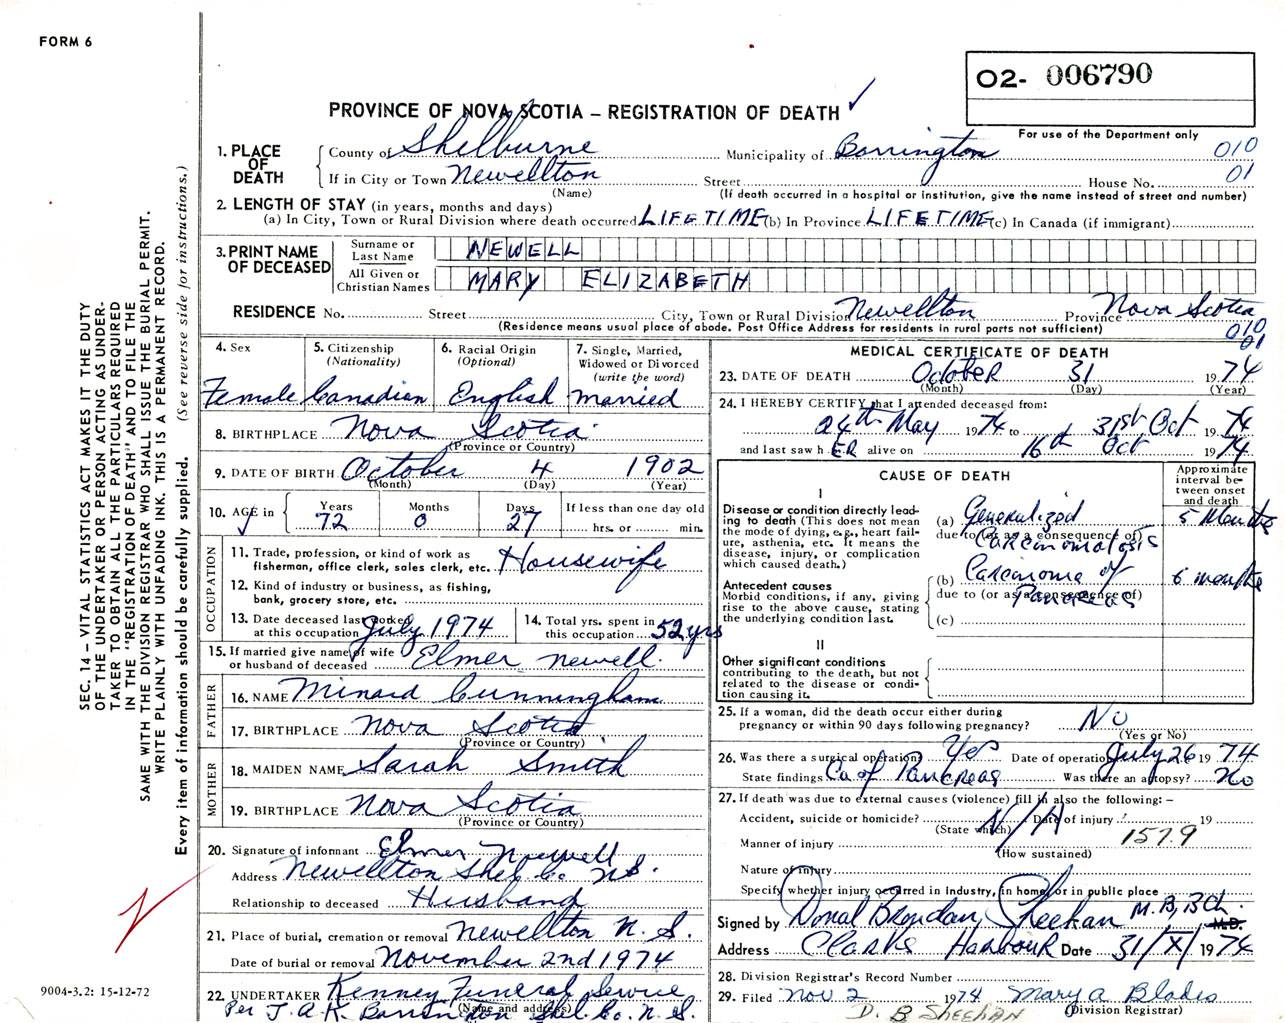 FORM 6
O2- 006790
PROVINCE OF NOVA SCOTIA – REGISTRATION OF DEATH ✓
For use of the Department only
1. PLACE OF DEATH
County of Shelburne Municipality of Barrington 010
If in City or Town Newellton Street House No. 01
(Name) (If death occurred in a hospital or institution, give the name instead of street and number)
2. LENGTH OF STAY (in years, months and days)
(a) In City, Town or Rural Division where death occurred LIFETIME (b) In Province LIFETIME (c) In Canada (if immigrant)
3. PRINT NAME OF DECEASED
Surname or Last Name NEWELL
All Given or Christian Names MARY ELIZABETH
RESIDENCE No. Street City, Town or Rural Division Newellton Province Nova Scotia
(Residence means usual place of abode. Post Office Address for residents in rural parts not sufficient) 010
01
4. Sex
Female
5. Citizenship
(Nationality)
Canadian
6. Racial Origin
(Optional)
English
7. Single, Married,
Widowed or Divorced
(write the word)
married
8. BIRTHPLACE Nova Scotia
(Province or Country)
9. DATE OF BIRTH October 4 1902
(Month) (Day) (Year)
10. AGE in
Years Months Days If less than one day old
72 0 27 hrs. or min.
OCCUPATION
11. Trade, profession, or kind of work as
fisherman, office clerk, sales clerk, etc. Housewife
12. Kind of industry or business, as fishing,
bank, grocery store, etc.
13. Date deceased last worked
at this occupation July 1974
14. Total yrs. spent in
this occupation 52 yrs
15. If married give name of wife
or husband of deceased Elmer Newell.
FATHER
16. NAME Minard Cunningham
17. BIRTHPLACE Nova Scotia
(Province or Country)
MOTHER
18. MAIDEN NAME Sarah Smith
19. BIRTHPLACE Nova Scotia
(Province or Country)
20. Signature of informant Elmer Newell
Address Newellton Shel. Co. N.S.
Relationship to deceased Husband
21. Place of burial, cremation or removal Newellton N.S.
Date of burial or removal November 2nd 1974
22. UNDERTAKER Kenney Funeral Service
(Name and address)
Per J.A.K. Barrington Shel. Co. N.S.
MEDICAL CERTIFICATE OF DEATH
23. DATE OF DEATH October 31 1974
(Month) (Day) (Year)
24. I HEREBY CERTIFY that I attended deceased from:
24th May 1974 to 31st Oct 1974
and last saw hER alive on 16th Oct 1974
CAUSE OF DEATH
Approximate
interval be-
tween onset
and death
I
Disease or condition directly lead-
ing to death (This does not mean
the mode of dying, e.g., heart fail-
ure, asthenia, etc. It means the
disease, injury, or complication
which caused death.)
(a) Generalized 5 Months
due to (or as a consequence of)
Carcinomatosis
Antecedent causes
Morbid conditions, if any, giving
rise to the above cause, stating
the underlying condition last.
(b) Carcinoma of 6 months
due to (or as a consequence of)
Pancreas
(c)
II
Other significant conditions
contributing to the death, but not
related to the disease or condi-
tion causing it.
25. If a woman, did the death occur either during
pregnancy or within 90 days following pregnancy? No
(Yes or No)
26. Was there a surgical operation? Yes Date of operation July 26 1974
State findings Ca of Pancreas Was there an autopsy? No
27. If death was due to external causes (violence) fill in also the following: –
Accident, suicide or homicide? N/A Date of injury 19
(State which)
Manner of injury 157.9
(How sustained)
Nature of injury
Specify whether injury occurred in industry, in home, or in public place
Signed by Donal Brendan Sheehan M.B, B.Ch. M.D.
Address Clarks Harbour Date 31/X/1974
28. Division Registrar's Record Number
29. Filed Nov. 2 1974 Mary A Blades
(Division Registrar)
D. B SHEEHAN
SEC. 14 – VITAL STATISTICS ACT MAKES IT THE DUTY
OF THE UNDERTAKER OR PERSON ACTING AS UNDER-
TAKER TO OBTAIN ALL THE PARTICULARS REQUIRED
IN THE "REGISTRATION OF DEATH" AND TO FILE THE
SAME WITH THE DIVISION REGISTRAR WHO SHALL ISSUE THE BURIAL PERMIT.
WRITE PLAINLY WITH UNFADING INK. THIS IS A PERMANENT RECORD.
Every item of information should be carefully supplied. (See reverse side for instructions.)
9004-3.2: 15-12-72